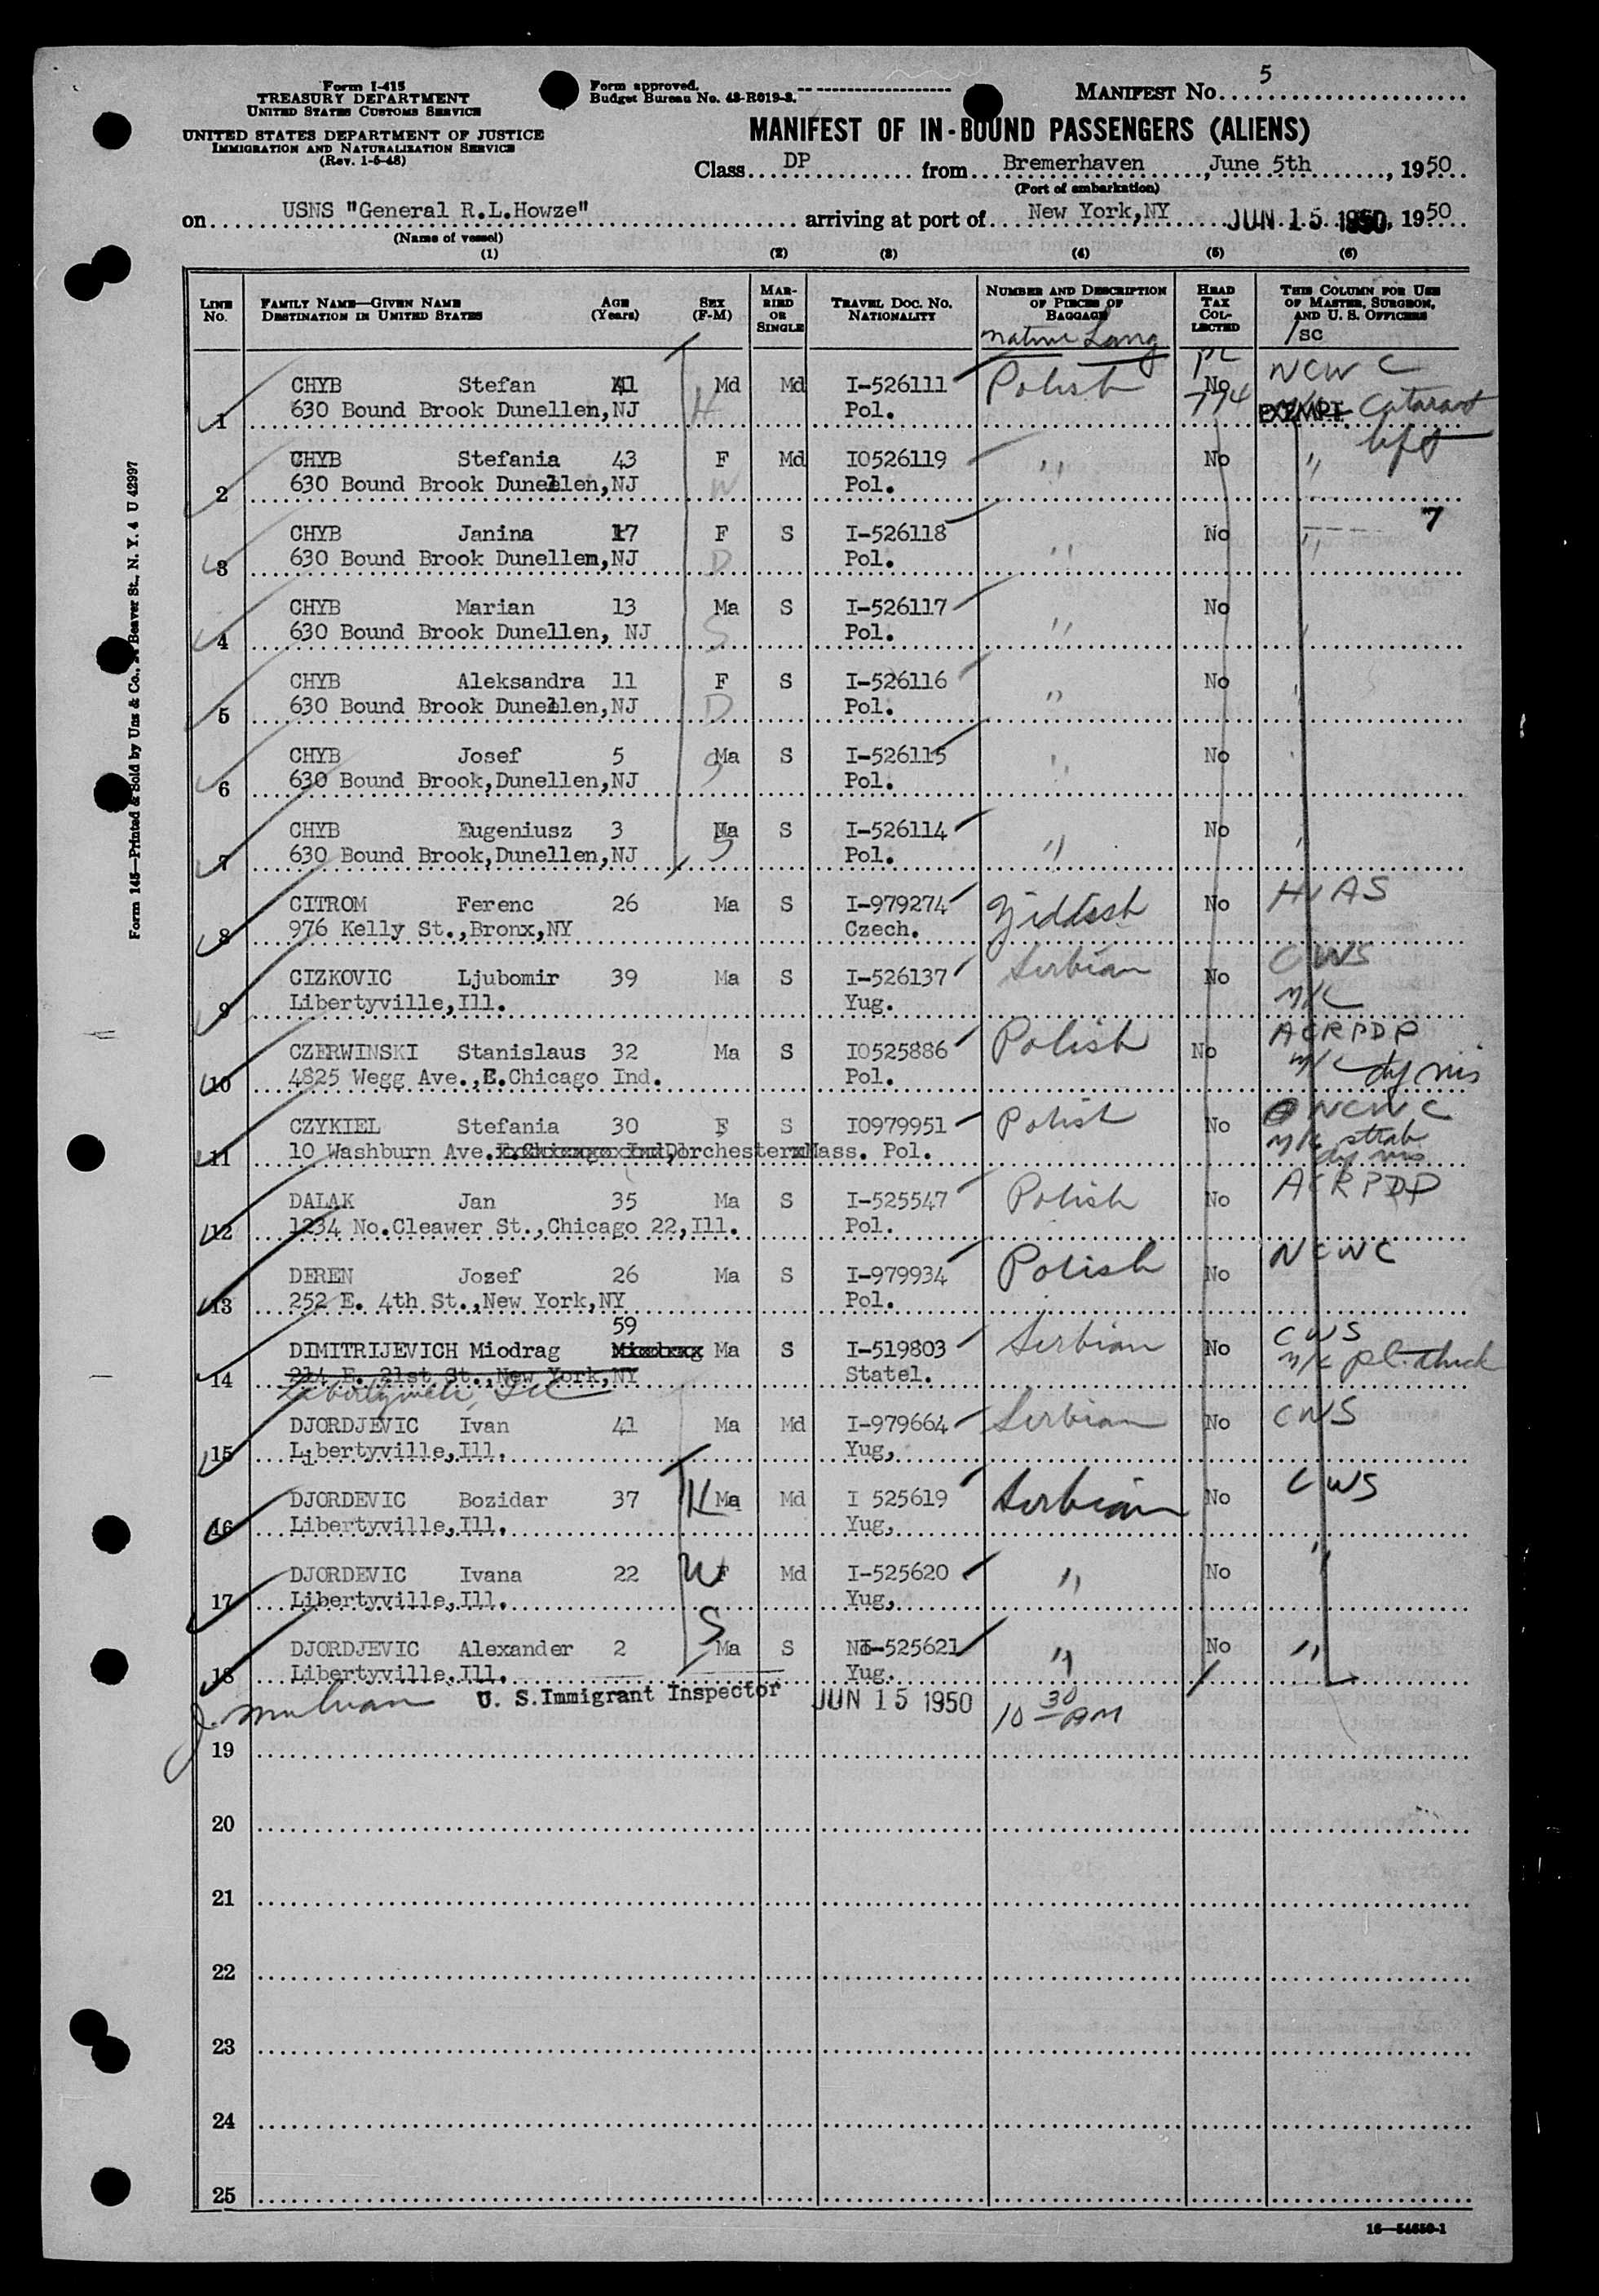 Form I-415
TREASURY DEPARTMENT
UNITED STATES CUSTOMS SERVICE
UNITED STATES DEPARTMENT OF JUSTICE
IMMIGRATION AND NATURALIZATION SERVICE
(Rev. 1-5-48)
Form approved.
Budget Bureau No. 43-R019-3.
MANIFEST No. 5
MANIFEST OF IN-BOUND PASSENGERS (ALIENS)
Class DP from Bremerhaven, June 5th, 1950
(Port of embarkation)
on USNS "General R.L.Howze" arriving at port of New York,NY JUN 15 1950, 1950
(Name of vessel)
(1) (2) (3) (4) (5) (6)
LINE No. FAMILY NAME—GIVEN NAME DESTINATION IN UNITED STATES AGE (Years) SEX (F-M) MARRIED OR SINGLE TRAVEL DOC. NO. NATIONALITY NUMBER AND DESCRIPTION OF PIECES OF BAGGAGE HEAD TAX COLLECTED THIS COLUMN FOR USE OF MASTER, SURGEON, AND U. S. OFFICERS
Native Lang /sc
CHYB Stefan 41 Md Md I-526111 Polish No NCWC
1 630 Bound Brook Dunellen,NJ H Pol. 794 EXEMPT Cataract left
CHYB Stefania 43 F Md IO526119 " No "
2 630 Bound Brook Dunellen,NJ W Pol.
CHYB Janina 17 F S I-526118 " No " 7
3 630 Bound Brook Dunellen,NJ D Pol.
CHYB Marian 13 Ma S I-526117 " No
4 630 Bound Brook Dunellen, NJ S Pol.
CHYB Aleksandra 11 F S I-526116 " No "
5 630 Bound Brook Dunellen,NJ D Pol.
CHYB Josef 5 Ma S I-526115 " No "
6 630 Bound Brook,Dunellen,NJ S Pol.
CHYB Eugeniusz 3 Ma S I-526114 " No "
7 630 Bound Brook,Dunellen,NJ S Pol.
CITROM Ferenc 26 Ma S I-979274 Yiddish No HIAS
8 976 Kelly St.,Bronx,NY Czech.
CIZKOVIC Ljubomir 39 Ma S I-526137 Serbian No CWS
9 Libertyville,Ill. Yug. n/c
CZERWINSKI Stanislaus 32 Ma S IO525886 Polish No ACRPDP
10 4825 Wegg Ave.,E.Chicago Ind. Pol. n/c df vis
CZYKIEL Stefania 30 F S IO979951 Polish No NCWC
11 10 Washburn Ave. E.Chicago Ind, Dorchester Mass. Pol. n/c strab df vis
DALAK Jan 35 Ma S I-525547 Polish No ACRPDP
12 1234 No.Cleawer St.,Chicago 22,Ill. Pol.
DEREN Jozef 26 Ma S I-979934 Polish No NCWC
13 252 E. 4th St.,New York,NY Pol.
59
DIMITRIJEVICH Miodrag Miodrag Ma S I-519803 Serbian No CWS
14 214 E. 21st St.,New York,NY Statel. n/c pl. thick
Libertyville, Ill
DJORDJEVIC Ivan 41 Ma Md I-979664 Serbian No CWS
15 Libertyville,Ill. Yug,
DJORDEVIC Bozidar 37 H Ma Md I 525619 Serbian No CWS
16 Libertyville,Ill. Yug,
DJORDEVIC Ivana 22 W F Md I-525620 " No "
17 Libertyville,Ill. Yug,
DJORDJEVIC Alexander 2 S Ma S I-525621 " No "
18 Libertyville,Ill. Yug.
U. S. Immigrant Inspector JUN 15 1950 10 30 AM
19
20
21
22
23
24
25
16—54650-1
Form 145—Printed & Sold by Unz & Co., Beaver St., N. Y. 4 U 42997